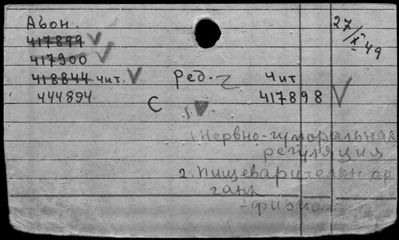 Абон.
417899
417900
418844 чит.
444894
Ред.
С
Чит
417898
27/X 49
1. Нервно-гуморальная
регуляция
2. Пищеварительн. ор
ганы
- физиол